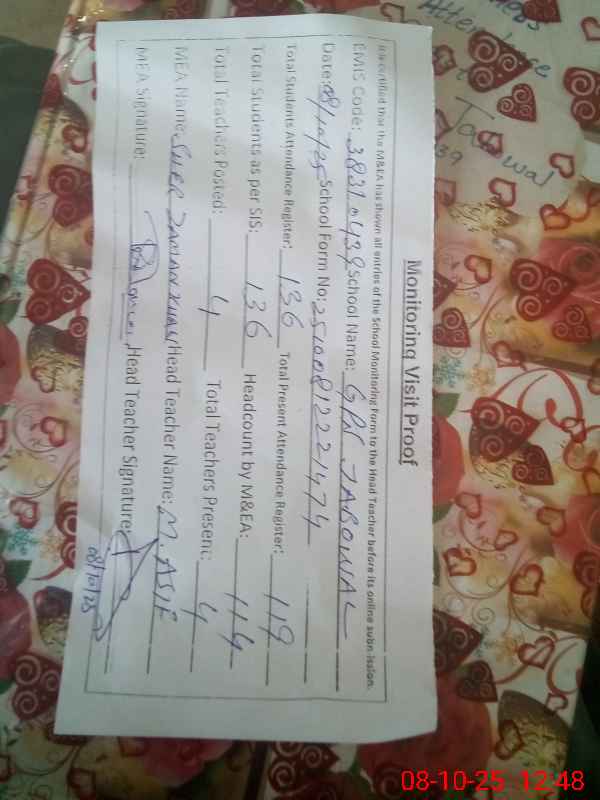 Monitoring Visit Proof
It is certified that the M&EA has shown all entries of the School Monitoring Form to the Head Teacher before its online submission.
EMIS Code: 38310439 School Name: GPS JABOWAL
Date: 08/10/25 School Form No: 25100812221474
Total Students Attendance Register: 136 Total Present Attendance Register: 119
Total Students as per SIS: 136 Headcount by M&EA: 114
Total Teachers Posted: 4 Total Teachers Present: 4
MEA Name: Head Teacher Name: M. ASIF
MEA Signature: Head Teacher Signature:
08/10/25
Attendance
439
08-10-25 12:48